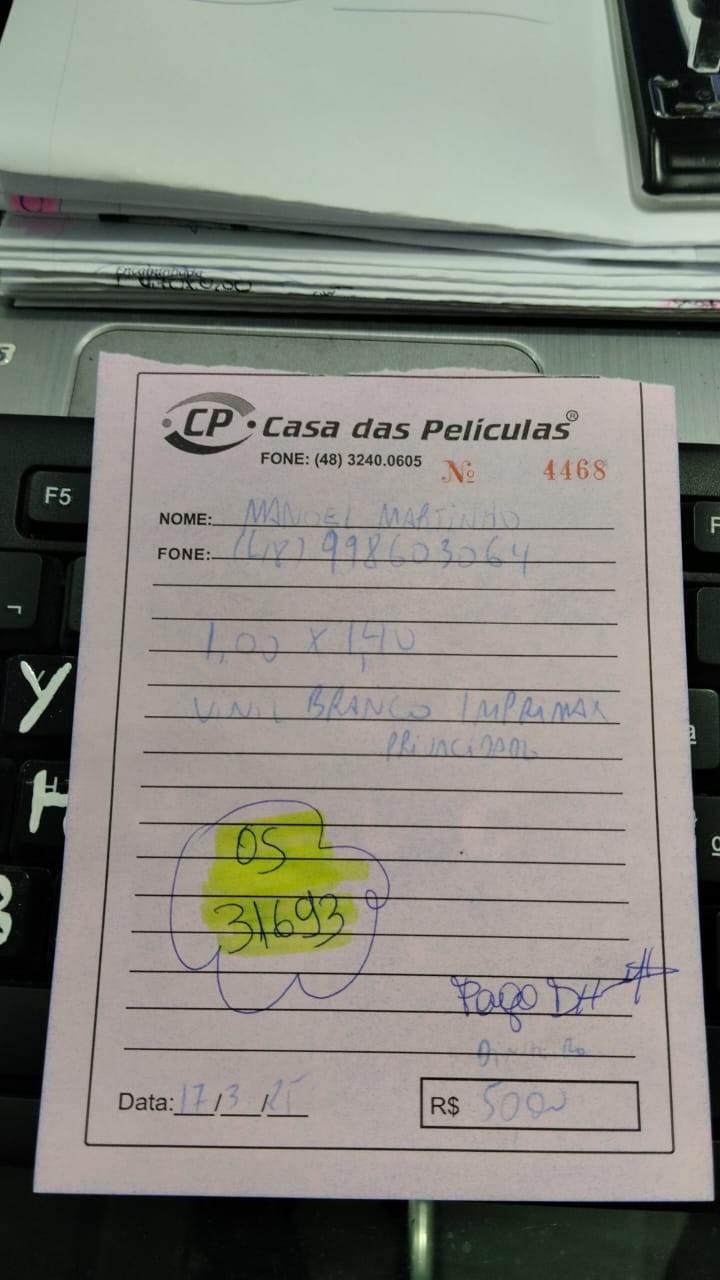 CP Casa das Películas®
FONE: (48) 3240.0605 Nº 4468
NOME: MANOEL MARTINHO
FONE: (48) 998603064
1,00 x 1,40
VINIL BRANCO IMPRIMAX
PRIVACIDADE
OS
31693
Pago DH
Dinheiro
Data: 17/3/25 R$ 5000
F5
Y
H